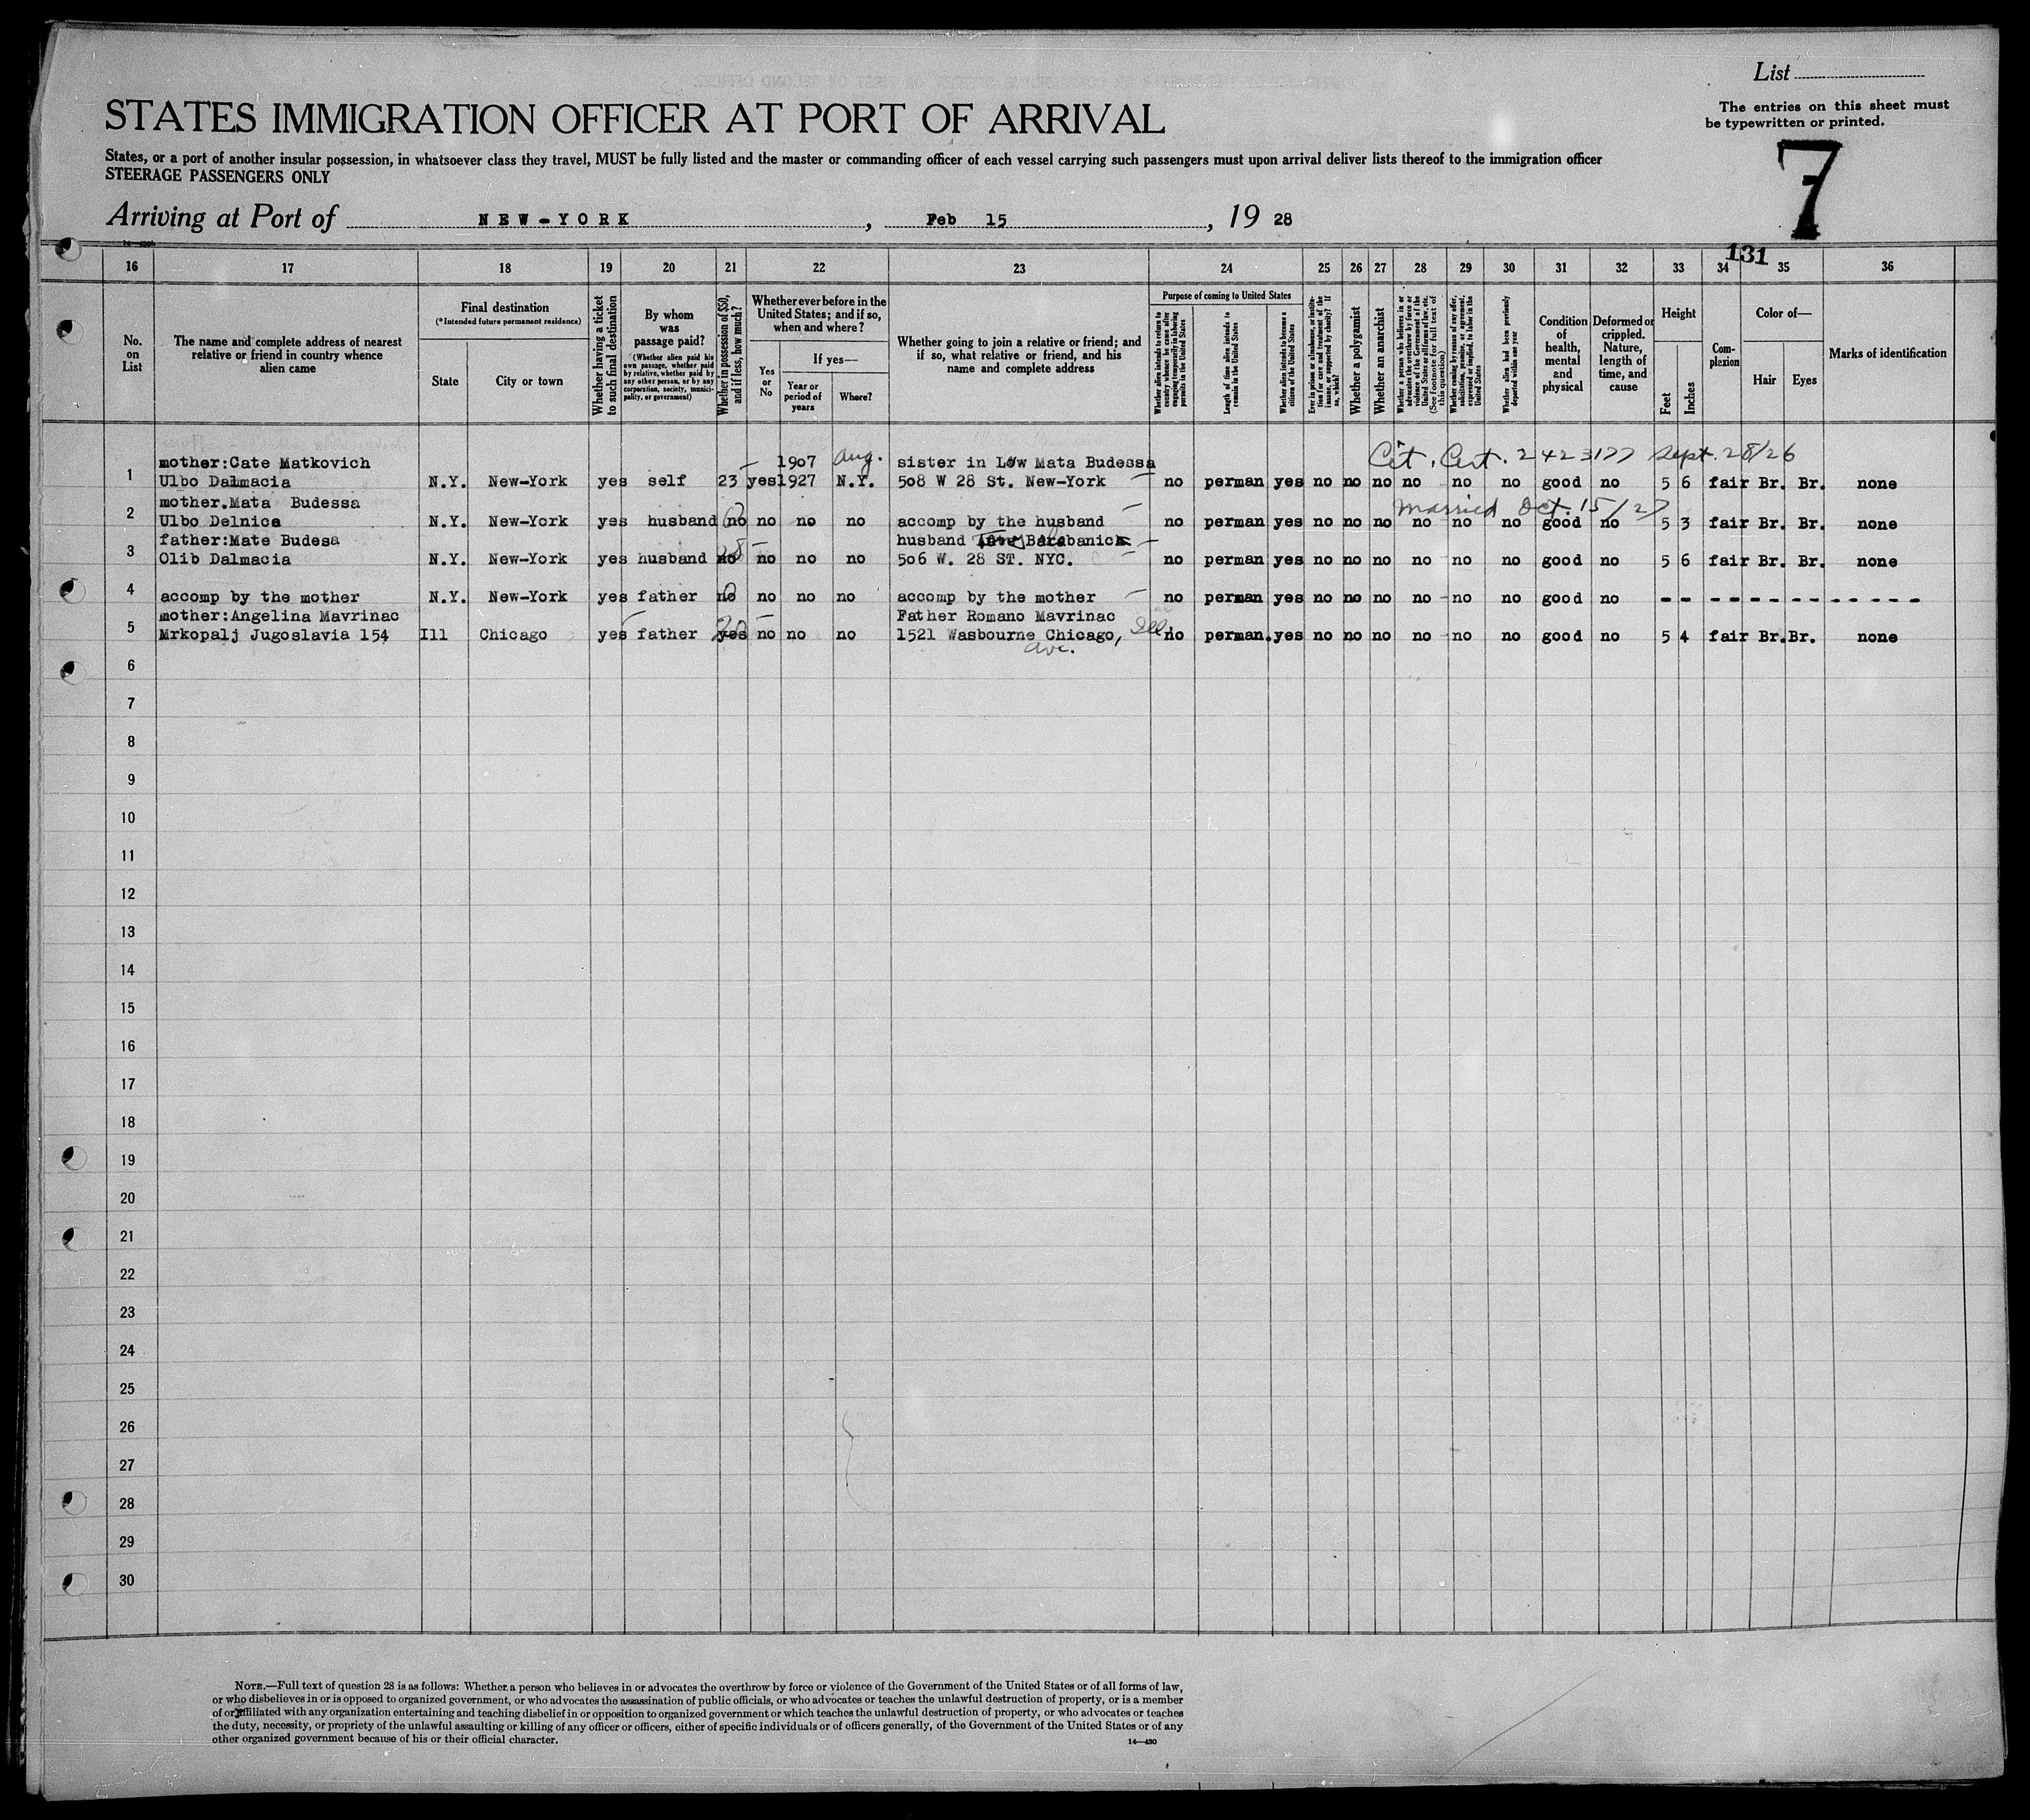 List
The entries on this sheet must
be typewritten or printed.
STATES IMMIGRATION OFFICER AT PORT OF ARRIVAL
States, or a port of another insular possession, in whatsoever class they travel, MUST be fully listed and the master or commanding officer of each vessel carrying such passengers must upon arrival deliver lists thereof to the immigration officer
STEERAGE PASSENGERS ONLY
7
Arriving at Port of NEW-YORK, Feb 15, 19 28
131
16 17 18 19 20 21 22 23 24 25 26 27 28 29 30 31 32 33 34 35 36
No. on List
The name and complete address of nearest relative or friend in country whence alien came
Final destination
(*Intended future permanent residence)
State
City or town
Whether having a ticket to such final destination
By whom was passage paid?
(Whether alien paid his own passage, whether paid by relative, whether paid by any other person, or by any corporation, society, municipality, or government)
Whether in possession of $50, and if less, how much?
Whether ever before in the United States; and if so, when and where?
Yes or No
If yes—
Year or period of years
Where?
Whether going to join a relative or friend; and if so, what relative or friend, and his name and complete address
Purpose of coming to United States
Whether alien intends to return to country whence he came after engaging temporarily in laboring pursuits in the United States
Length of time alien intends to remain in the United States
Whether alien intends to become a citizen of the United States
Ever in prison or almshouse, or institution for care and treatment of the insane, or supported by charity? If so, which?
Whether a polygamist
Whether an anarchist
Whether a person who believes in or advocates the overthrow by force or violence of the Government of the United States or all forms of law, etc. (See footnote for full text of this question)
Whether coming by reason of any offer, solicitation, promise, or agreement, expressed or implied, to labor in the United States
Whether alien had been previously deported within one year
Condition of health, mental and physical
Deformed or crippled. Nature, length of time, and cause
Height
Feet
Inches
Complexion
Color of—
Hair
Eyes
Marks of identification
Cit. Cert. 2423177 Sept. 28/26
mother:Cate Matkovich 1907 Aug. sister in Low Mata Budessa
1 Ulbo Dalmacia N.Y. New-York yes self 23 yes 1927 N.Y. 508 W 28 St. New-York no perman yes no no no no no no good no 5 6 fair Br. Br. none
mother.Mata Budessa Married Oct. 15/27
2 Ulbo Delnice N.Y. New-York yes husband no no no no accomp by the husband no perman yes no no no no no no good no 5 3 fair Br. Br. none
father:Mate Budesa husband Barabanich
3 Olib Dalmacia N.Y. New-York yes husband no no no no 506 W. 28 ST. NYC. no perman yes no no no no no no good no 5 6 fair Br. Br. none
4 accomp by the mother N.Y. New-York yes father no no no no accomp by the mother no perman yes no no no no no no good no - - - - - - - - - - - - -
mother:Angelina Mavrinac Father Romano Mavrinac
5 Mrkopalj Jugoslavia 154 Ill Chicago yes father yes no no no 1521 Wasbourne Chicago, Ill. no perman. yes no no no no no no good no 5 4 fair Br. Br. none
Ave.
6
7
8
9
10
11
12
13
14
15
16
17
18
19
20
21
22
23
24
25
26
27
28
29
30
NOTE.—Full text of question 28 is as follows: Whether a person who believes in or advocates the overthrow by force or violence of the Government of the United States or of all forms of law,
or who disbelieves in or is opposed to organized government, or who advocates the assassination of public officials, or who advocates or teaches the unlawful destruction of property, or is a member
of or affiliated with any organization entertaining and teaching disbelief in or opposition to organized government or which teaches the unlawful destruction of property, or who advocates or teaches
the duty, necessity, or propriety of the unlawful assaulting or killing of any officer or officers, either of specific individuals or of officers generally, of the Government of the United States or of any
other organized government because of his or their official character.
14—430